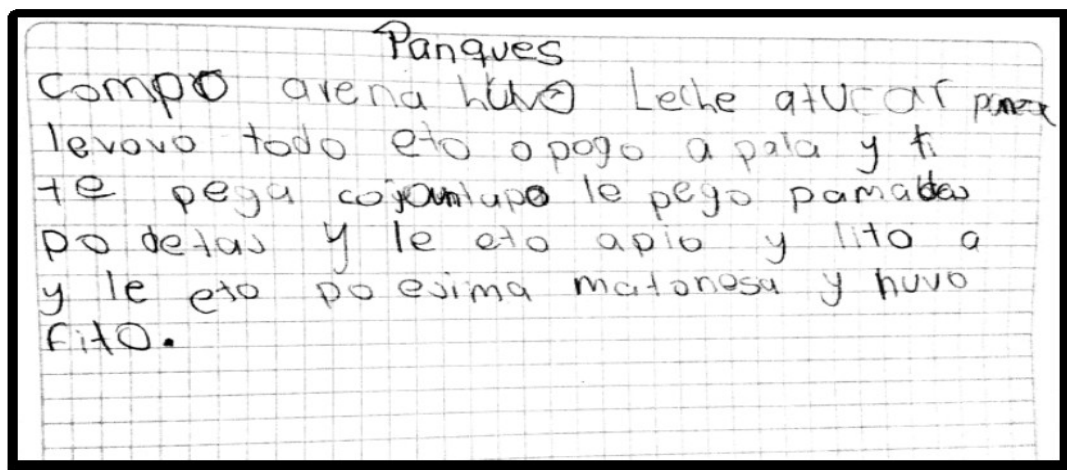 Panques
compo arena huvo Leche atucar
levovo todo eto o pogo a pala y ti
te pega le pego
po detas y le eto apio y lito a
y le eto po esima matonesa y huvo
fito.